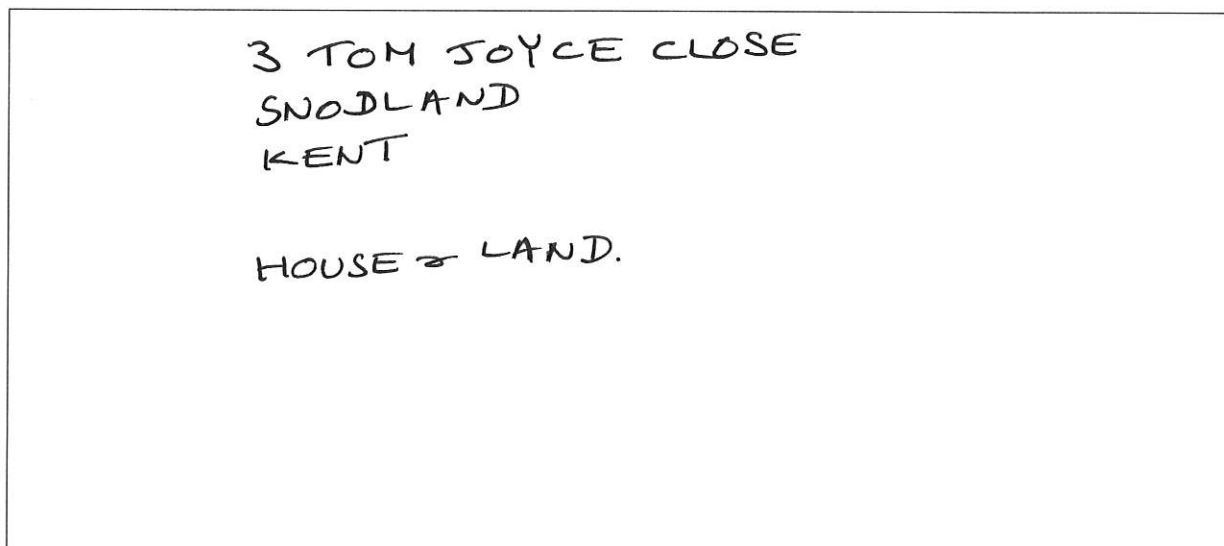 3 TOM JOYCE CLOSE
SNODLAND
KENT
HOUSE & LAND.